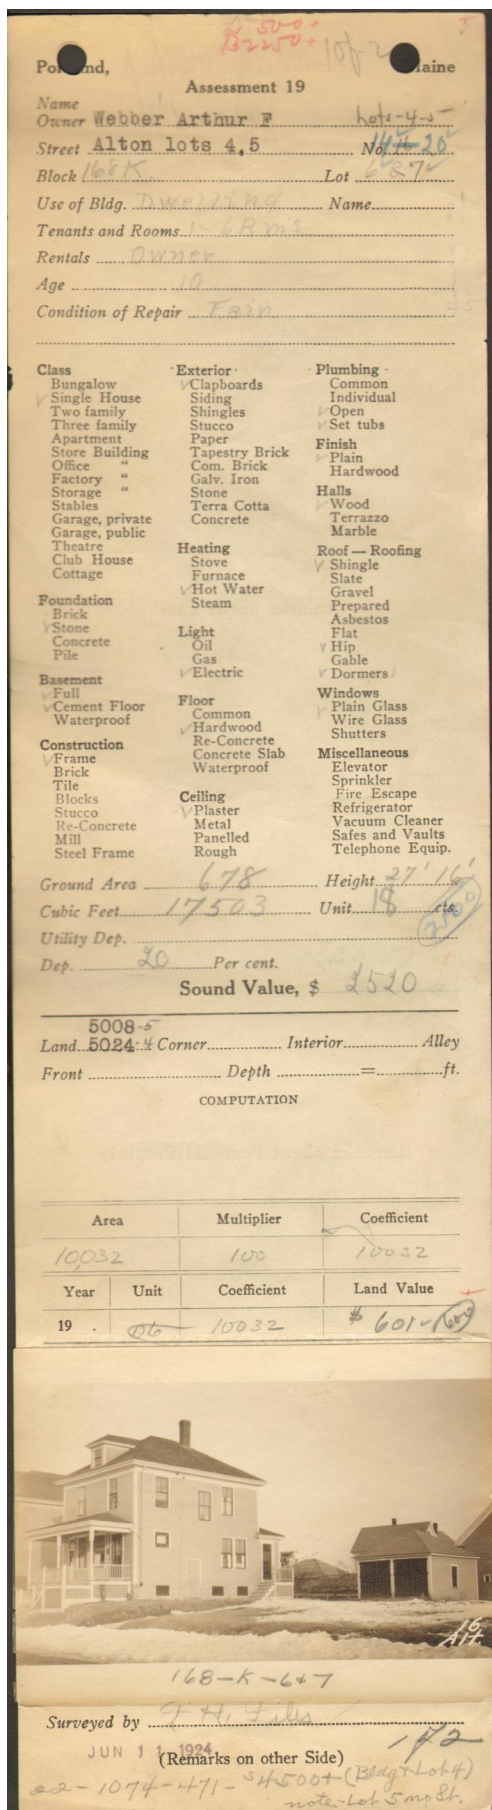 L 500+
B 2250+ 1 of 2
Portland, Maine
Assessment 19
Name
Owner Webber Arthur F Lots-4-5
Street Alton lots 4,5 No. 20
Block 168K. Lot 6 & 7
Use of Bldg. Dwelling Name
Tenants and Rooms 1-6 Rms
Rentals Owner
Age 10
Condition of Repair Fair
Class
Bungalow
✓ Single House
Two family
Three family
Apartment
Store Building
Office "
Factory "
Storage "
Stables
Garage, private
Garage, public
Theatre
Club House
Cottage
Foundation
Brick
✓ Stone
Concrete
Pile
Basement
✓ Full
✓ Cement Floor
Waterproof
Construction
✓ Frame
Brick
Tile
Blocks
Stucco
Re-Concrete
Mill
Steel Frame
Exterior
✓ Clapboards
Siding
Shingles
Stucco
Paper
Tapestry Brick
Com. Brick
Galv. Iron
Stone
Terra Cotta
Concrete
Heating
Stove
Furnace
✓ Hot Water
Steam
Light
Oil
Gas
✓ Electric
Floor
Common
✓ Hardwood
Re-Concrete
Concrete Slab
Waterproof
Ceiling
✓ Plaster
Metal
Panelled
Rough
Plumbing
Common
Individual
✓ Open
✓ Set tubs
Finish
✓ Plain
Hardwood
Halls
✓ Wood
Terrazzo
Marble
Roof — Roofing
✓ Shingle
Slate
Gravel
Prepared
Asbestos
Flat
✓ Hip
Gable
✓ Dormers 1
Windows
✓ Plain Glass
Wire Glass
Shutters
Miscellaneous
Elevator
Sprinkler
Fire Escape
Refrigerator
Vacuum Cleaner
Safes and Vaults
Telephone Equip.
Ground Area 678 Height 27' 16'
Cubic Feet 17503 Unit 18 cts.
Utility Dep.
Dep. 20 Per cent.
Sound Value, $ 2520
5008-5
Land 5024-4 Corner Interior Alley
Front Depth = ft.
COMPUTATION
Area Multiplier Coefficient
10,032 100 10032
Year Unit Coefficient Land Value
19 . 06 10032 $ 601 600
16
Alt.
168-K-6+7
Surveyed by F H. Files
JUN 11 1924
(Remarks on other Side) 172
22-1074-471-$4500+(Bldg+Lot 4)
note-Lot 5 no St.